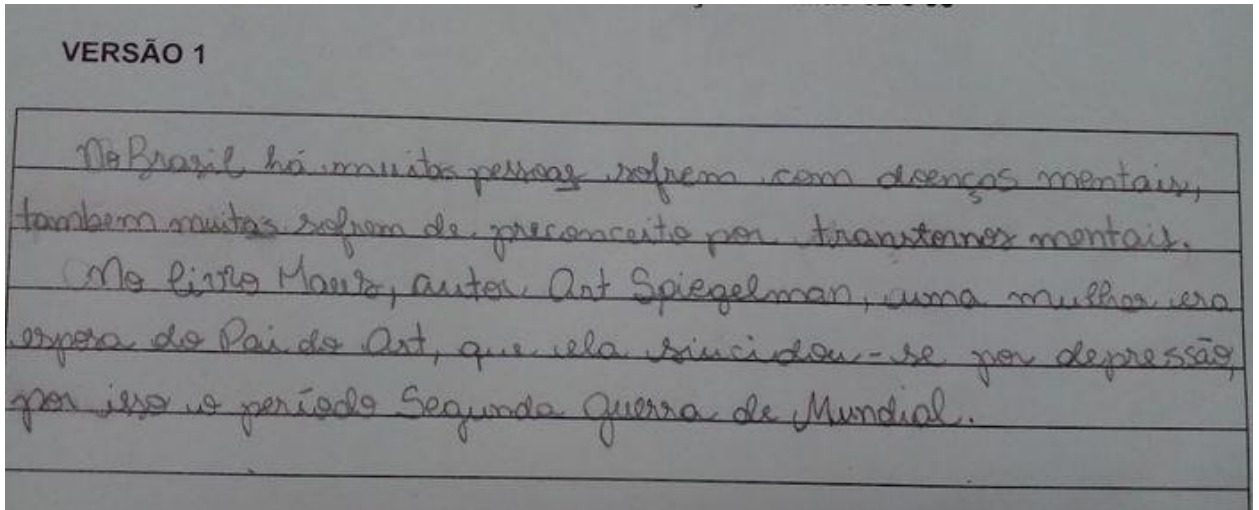 VERSÃO 1
No Brasil há muitas pessoas sofrem com doenças mentais,
tambem muitas sofrem de preconceito por transtornos mentais.
No livro Maus, autor Art Spiegelman, uma mulher era
espora do Pai do Art, que ela siucidou-se por depressão,
por isso o período Segunda Guerra de Mundial.